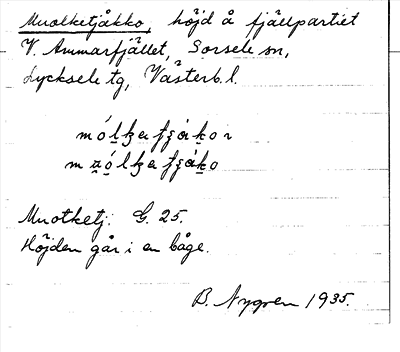 Muolketjåkko, höjd å fjällpartiet
V. Ammarfjället, Sorsele sn,
Lycksele tg, Västerb. l.
Muotketj. G. 25.
Höjden går i en båge.
B. Nygren 1935.